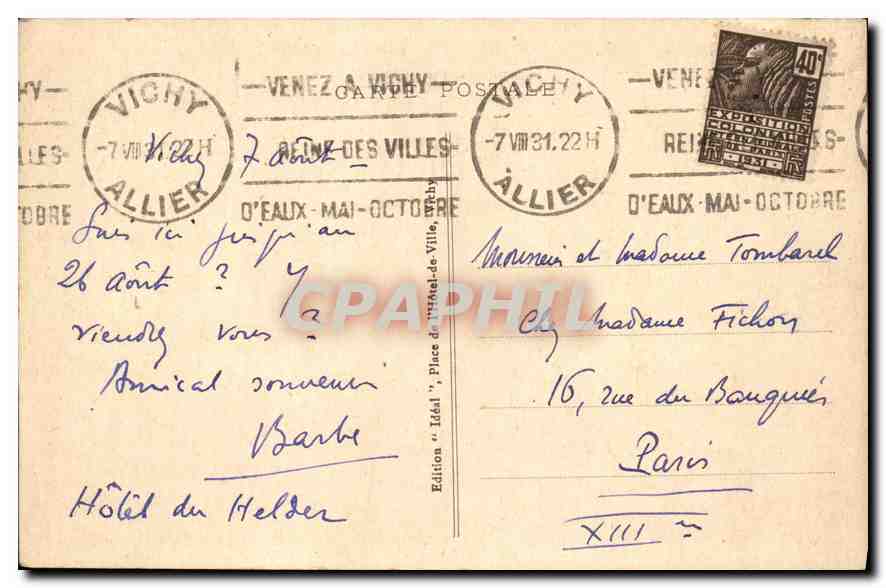 CARTE POSTALE
VICHY
-7 VIII 31.22 H
ALLIER
VENEZ A VICHY
REINE DES VILLES-
D'EAUX-MAI-OCTOBRE
VICHY
-7 VIII 31.22 H
ALLIER
VENE
REIN ES-
D'EAUX-MAI-OCTOBRE
HY-
LLES-
TOBRE
40c
POSTES
EXPOSITION
COLONIALE
INTERNATIONALE
1931
Vichy 7 août
Suis ici jusqu'au
26 Août ? Y
viendrez vous ?
Amical souvenir
Barbe
Hôtel du Helder
Edition " Idéal ", Place de l'Hôtel-de-Ville, Vichy
Monsieur et Madame Tombarel
Chez Madame Fichon
16, rue du Banquiés
Paris
XIII
CPAPHIL